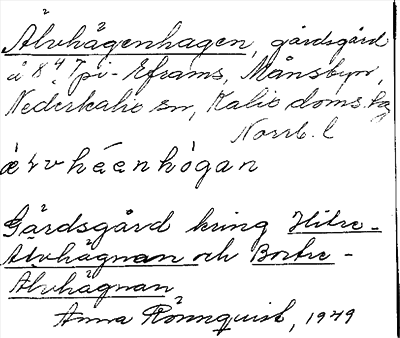 Älvhägenhagen, gårdsgård
å 8⁴ Typi-Eframs, Månsbyn,
Nederkalix sn, Kalix doms. hg
Norrb. l
Gärdsgård kring Hitre-
Älvhägnan och Bortre-
Älvhägnan
Anna Rönnquist, 1949